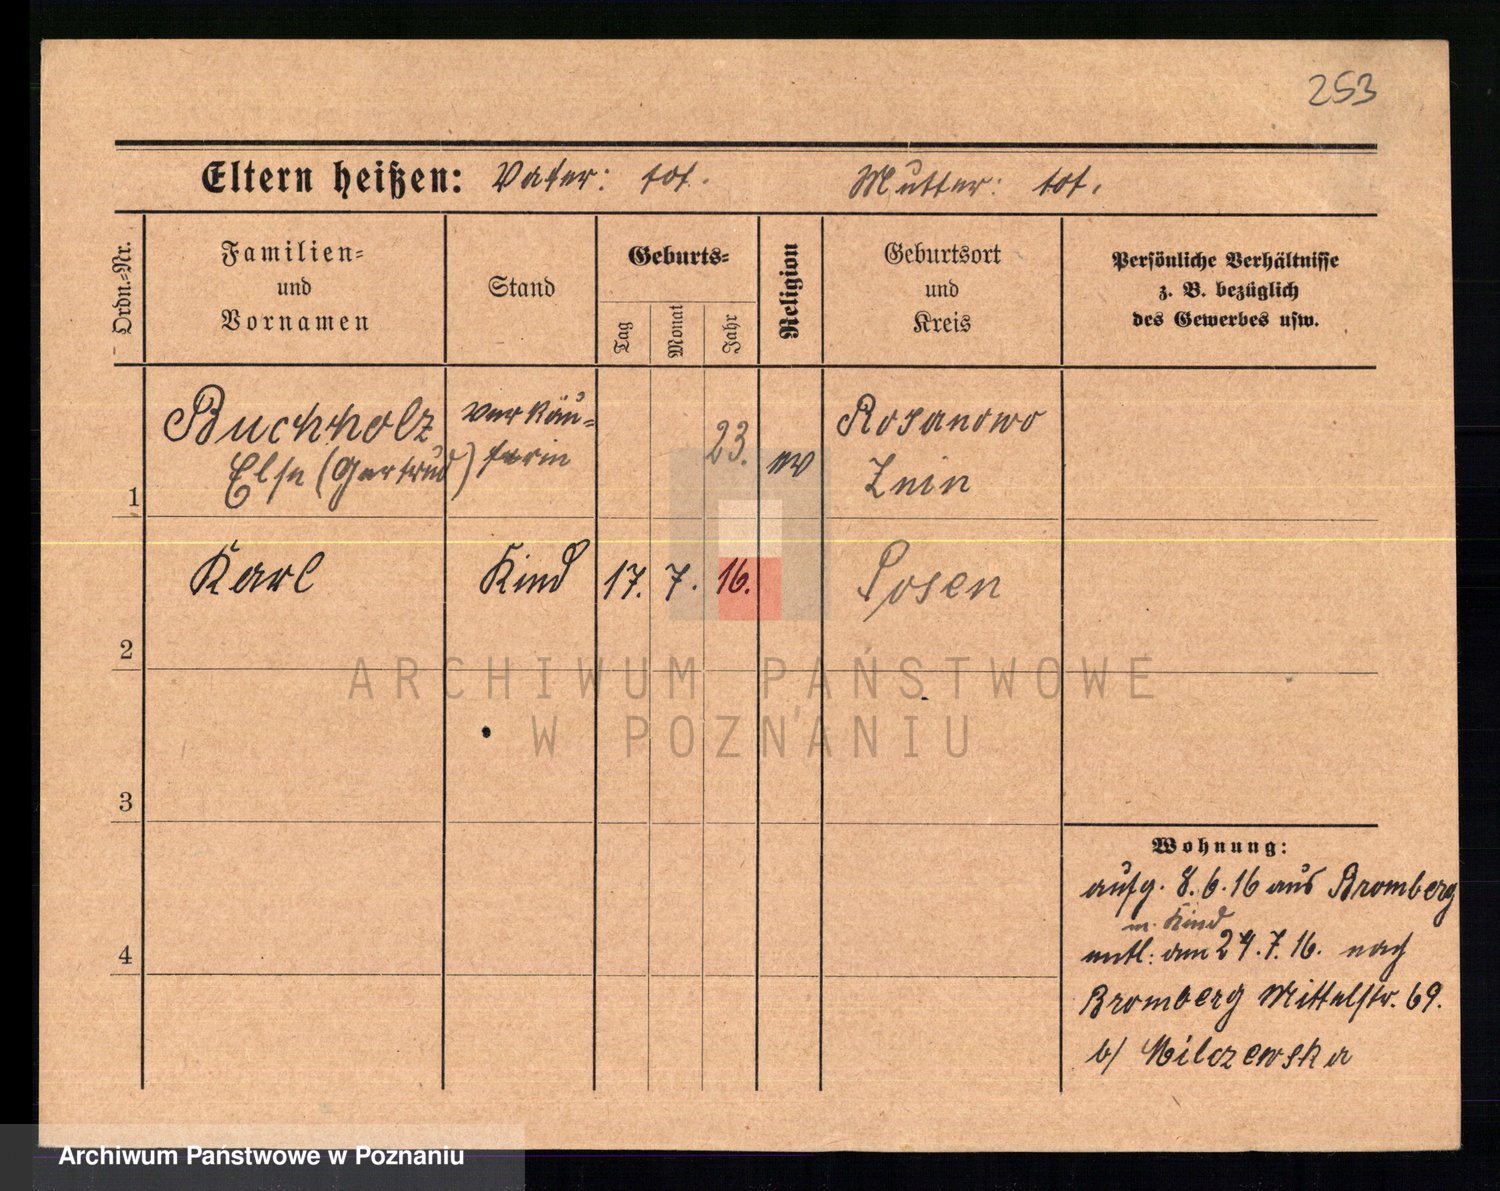 253
Eltern heißen: Vater: tot. Mutter: tot.
Ordn.-Nr.
Familien-
und
Vornamen
Stand
Geburts-
Tag
Monat
Jahr
Religion
Geburtsort
und
Kreis
Persönliche Verhältnisse
z. B. bezüglich
des Gewerbes usw.
1
Buchholz
Else (Gertrud)
Verkäu-
ferin
23.
ev
Rosanowo
Znin
2
Karl
Kind
17. 7. 16.
Posen
3
4
Wohnung:
aufg. 8.6.16 aus Bromberg
m. Kind
entl: am 24.7.16. nach
Bromberg Mittelstr. 69.
b/ Milczewska
ARCHIWUM PAŃSTWOWE
W POZNANIU
Archiwum Państwowe w Poznaniu